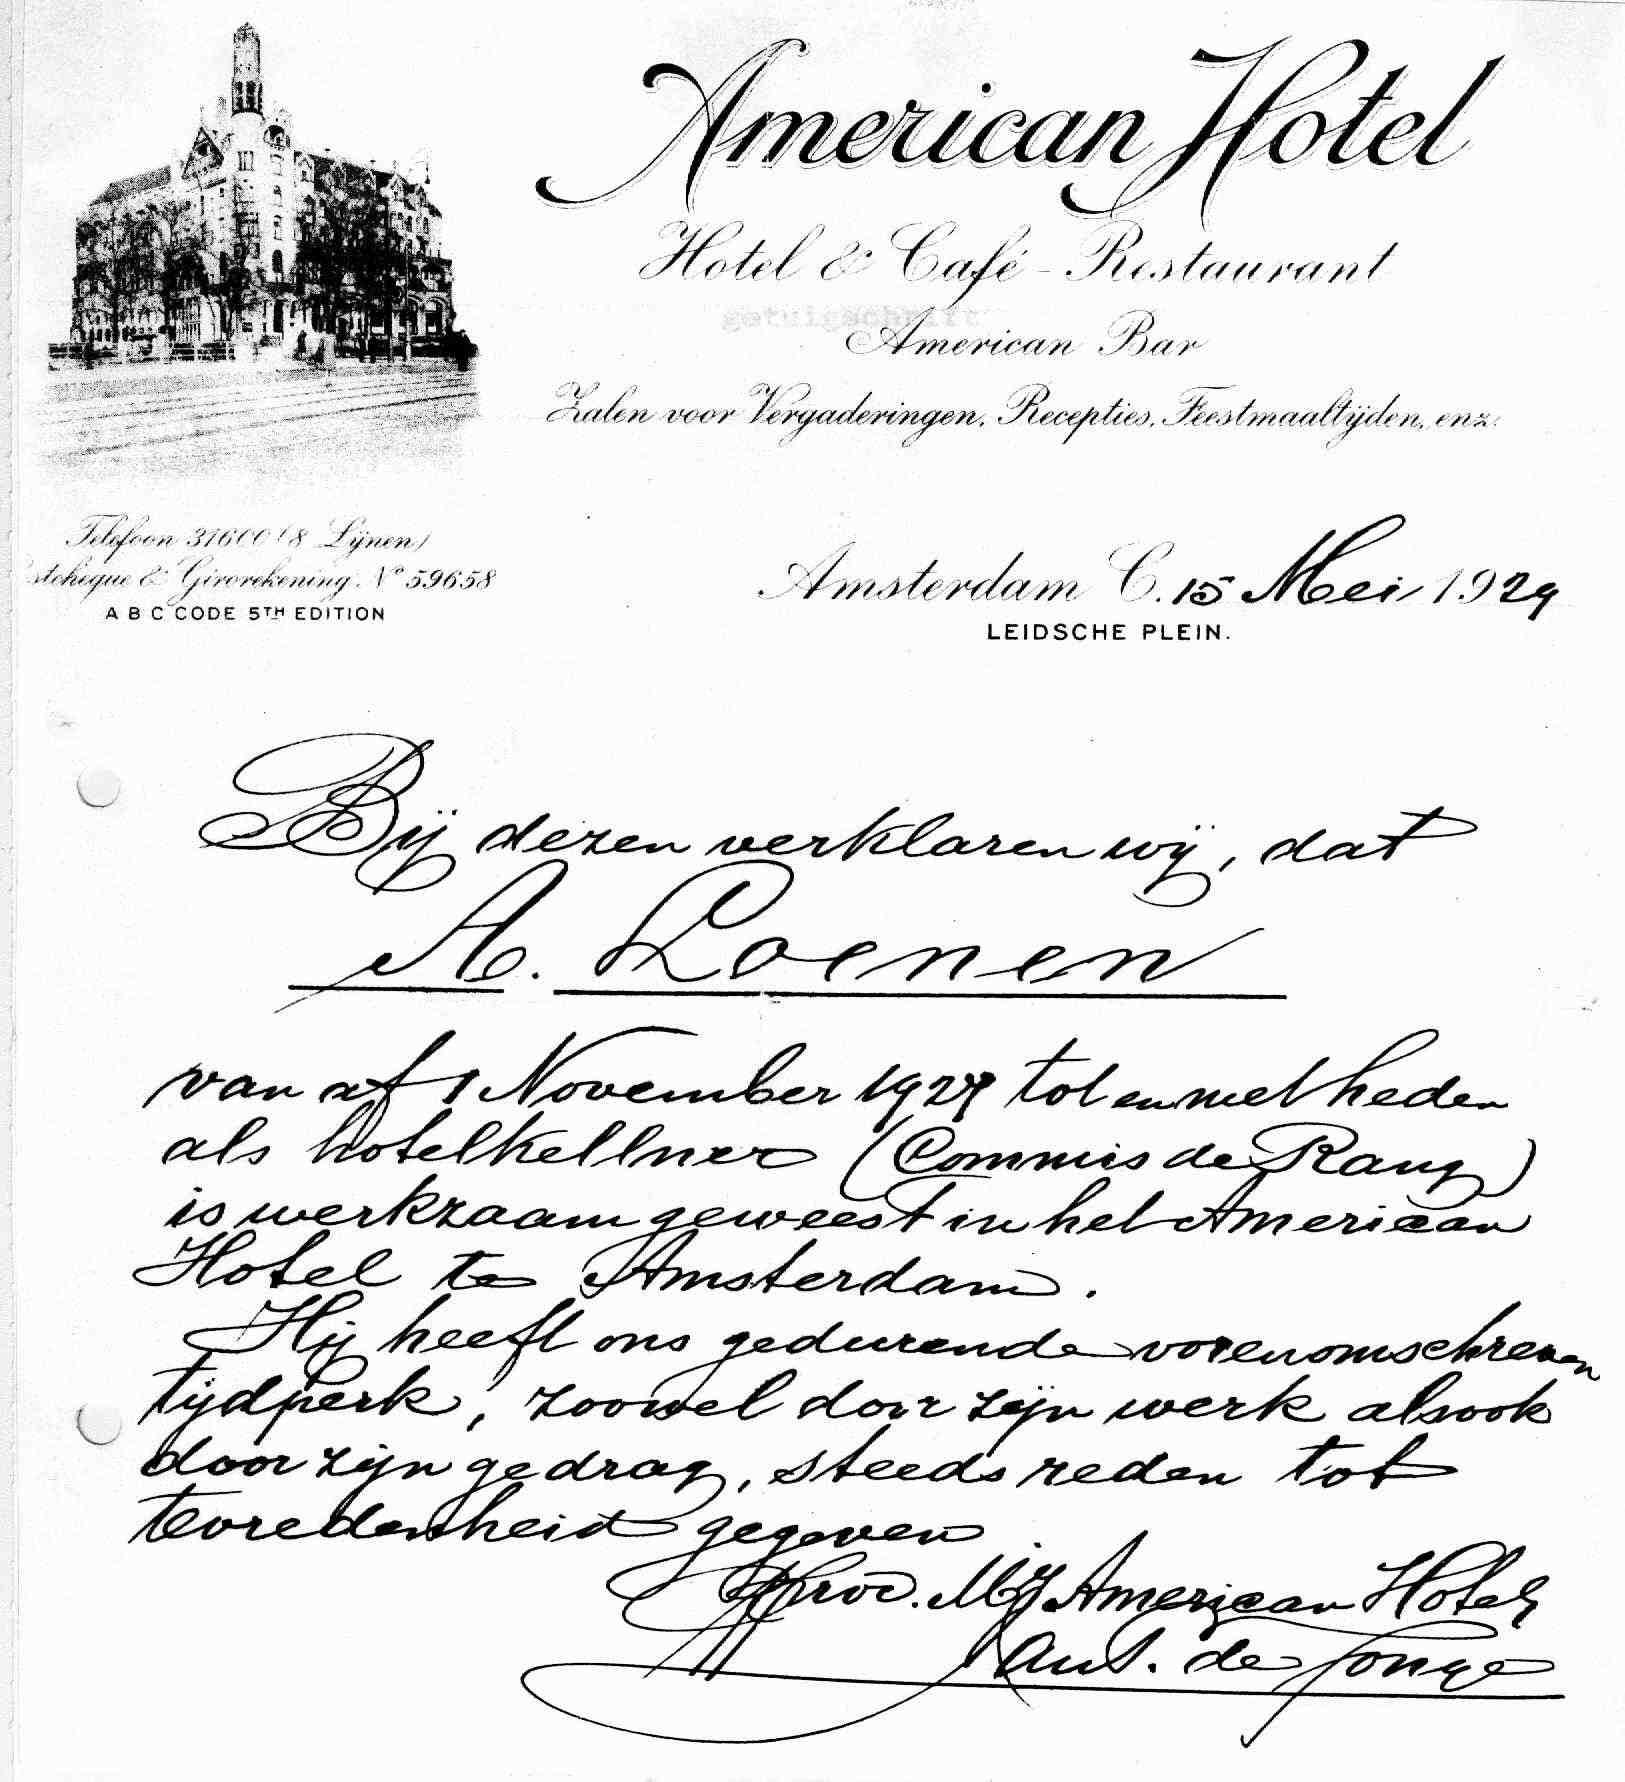 American Hotel
Hotel & Café - Restaurant
getuigschrift
American Bar
Zalen voor Vergaderingen, Recepties, Feestmaaltijden, enz.
Telefoon 31600 (8 Lijnen)
& Girorekening. No 59658
A B C CODE 5TH EDITION
Amsterdam C. 15 Mei 1929
LEIDSCHE PLEIN.
Bij dezen verklaren wij, dat
A. Loenen
van af 1 November tot en met heden
als hotelkellner (Commis de Rang)
is werkzaam geweest in het American
Hotel te Amsterdam.
Hij heeft ons gedurende vorenomschreven
tijdperk, zoowel door zijn werk alsook
door zijn gedrag, steeds reden tot
tevredenheid gegeven
pproc. Mij American Hotel
Ant. de Jonge